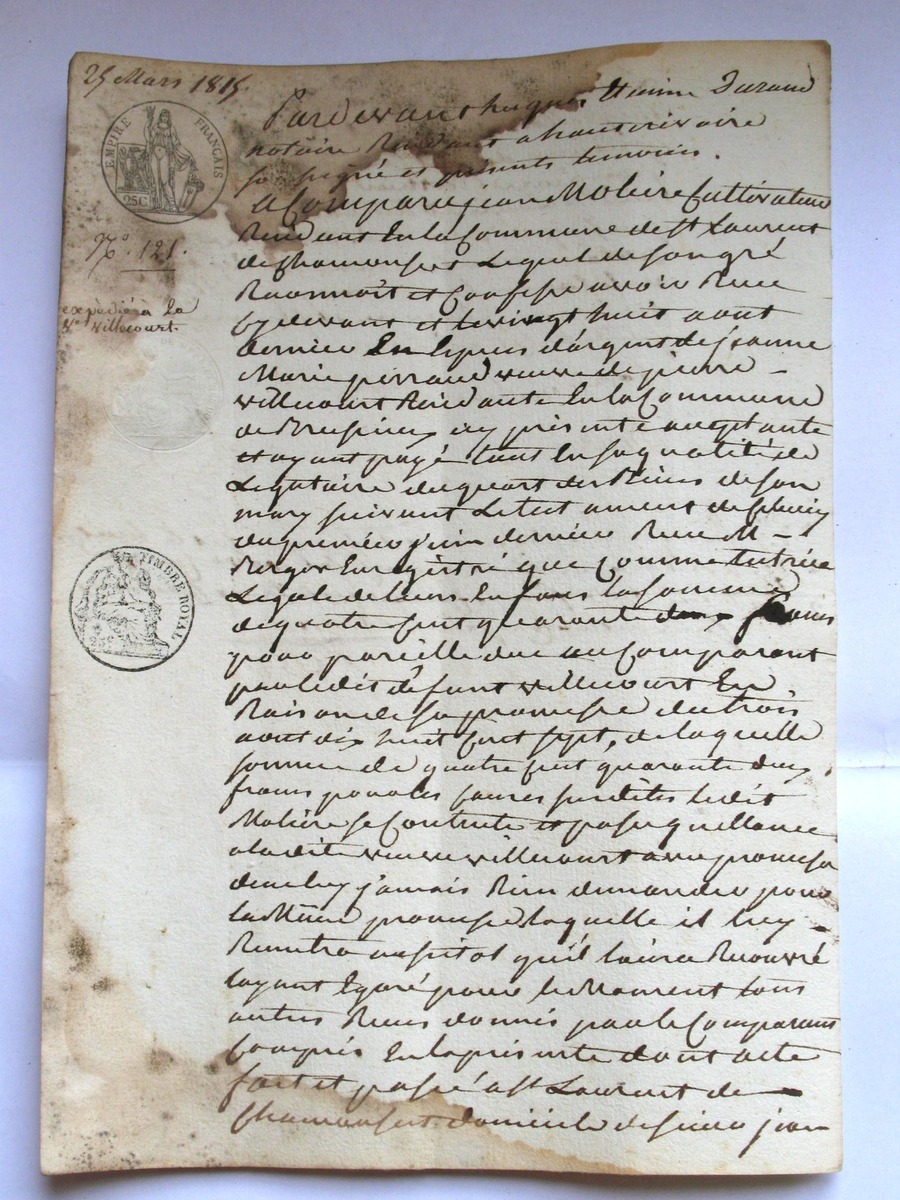 25 Mars 1815.
EMPIRE FRANÇAIS
25C
N.° 121.
expédié à La
V.e Villecourt.
TIMBRE ROYAL
25c
Pardevant hugues Durand
notaire Residant a hauterivoire
soussigné et présents temoins.
a Comparu jean Moliere Cultivateur
Residant En la Commune de St Laurent
de Chamousset Lequel de son gré
Reconnoit et Confesse avoir Recu
cy devant et le vingt huit aout
dernier En Especes d'argent de jeanne
Marie perraud veuve de pierre
villecourt Residante En la Commune
de Brussieu, icy présente acceptante
et ayant payé tant En sa qualité de
Legataire du quart des Biens de son
mary suivant Le testament de
du premier juin dernier Recu M
Enregistré que Comme tutrice
Legale de leurs Enfans la somme
de quatre cent quarante deux francs
pour pareille due au Comparant
par le dit défunt villecourt En
Raison de sa promesse du trois
aout dix huit cent sept, de laquelle
somme de quatre cent quarante deux
francs pour les causes susdites ledit
Moliere se Contente et passe quittance
a la dite veuve villecourt avec promesse
de ne luy jamais Rien demander pour
la Même promesse laquelle il luy
Remettra aussitot qu'il l'aura Recouvré
layant Egaré pour le Moment tous
autres Recus donnés par le Comparant
Compris En la présente dont acte
fait et passé a St Laurent de
Chamousset domicile de sieur jean